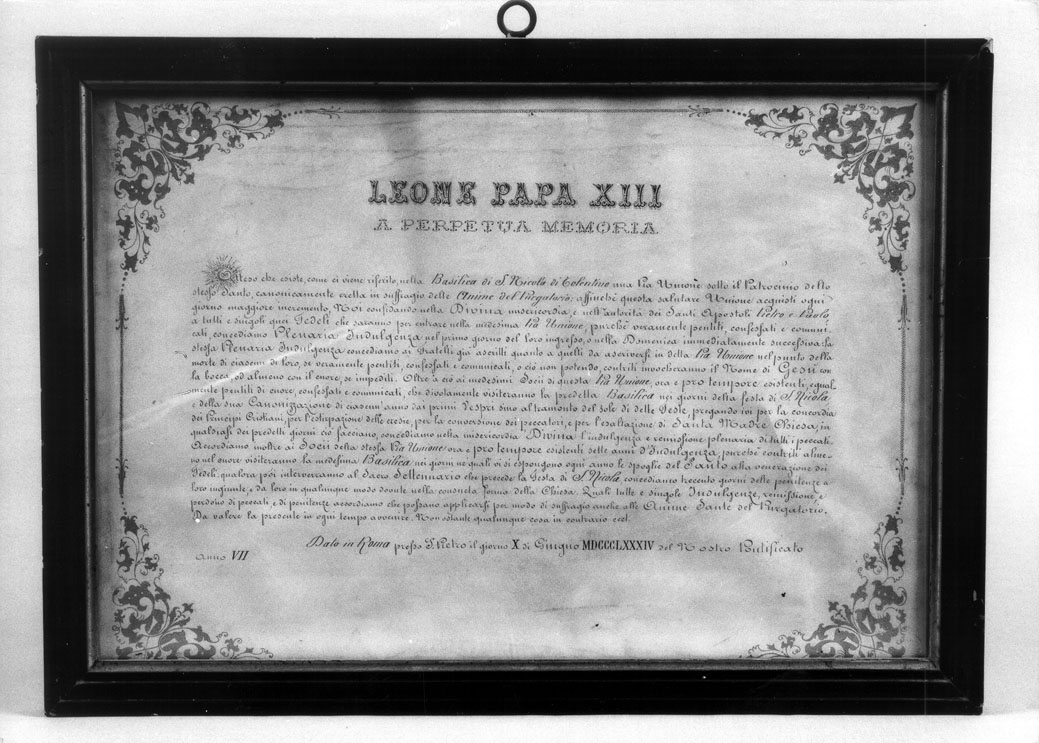 LEONE PAPA XIII
A PERPETUA MEMORIA
Atteso che esiste, come ci viene riferito, nella Basilica di S. Nicola di Tolentino una Pia Unione sotto il Patrocinio dello
stesso Santo, canonicamente eretta in suffragio delle Anime del Purgatorio: affinchè questa salutare Unione acquisti ogni
giorno maggiore incremento, Noi confidando nella Divina misericordia, e nell'autorità dei Santi Apostoli Pietro e Paolo,
a tutti e singoli quei Fedeli che saranno per entrare nella medesima Pia Unione, purchè veramente pentiti, confessati e comuni-
cati, concediamo Plenaria Indulgenza, nel primo giorno del loro ingresso, o nella Domenica immediatamente successiva: la
stessa Plenaria Indulgenza concediamo ai Fratelli già ascritti quanto a quelli da ascriversi in detta Pia Unione nel punto della
morte di ciascun di loro, se veramente pentiti, confessati e comunicati, o ciò non potendo, contriti invocheranno il Nome di Gesù con
la bocca, od almeno con il cuore, se impediti. Oltre a ciò ai medesimi Socii di questa Pia Unione, ora e pro tempore esistenti, egual-
mente pentiti di cuore, confessati e comunicati, che divotamente visiteranno la predetta Basilica nei giorni della festa di S. Nicola,
e della sua Canonizzazione di ciascun'anno dai primi Vespri sino al tramonto del sole di dette Feste, pregando ivi per la concordia
dei Principi Cristiani, per l'estirpazione delle eresie, per la conversione dei peccatori, e per l'esaltazione di Santa Madre Chiesa, in
qualsiasi dei predetti giorni ciò facciano, concediamo nella misericordia Divina l'indulgenza e remissione plenaria di tutti i peccati.
Accordiamo inoltre ai Socii della stessa Pia Unione ora e pro tempore esistenti sette anni d'Indulgenza, purchè contriti alme-
no nel cuore visiteranno la medesima Basilica nei giorni ne quali vi si espongono ogni anno le spoglie del Santo alla venerazione dei
Fedeli: qualora poi interverranno al Sacro Settennario che precede la Festa di S. Nicola, concediamo trecento giorni delle penitenze a
loro ingiunte, e da loro in qualunque modo dovute nella consueta forma della Chiesa. Quali tutte e singole Indulgenze, remissione e
perdono di peccati, e di penitenze accordiamo che possano applicarsi per modo di suffragio anche alle Anime Sante del Purgatorio.
Da valere la presente in ogni tempo avvenire. Non ostante qualunque cosa in contrario ecct.
Dato in Roma presso S. Pietro il giorno X di Giugno MDCCCLXXXIV del Nostro Putificato
Anno VII